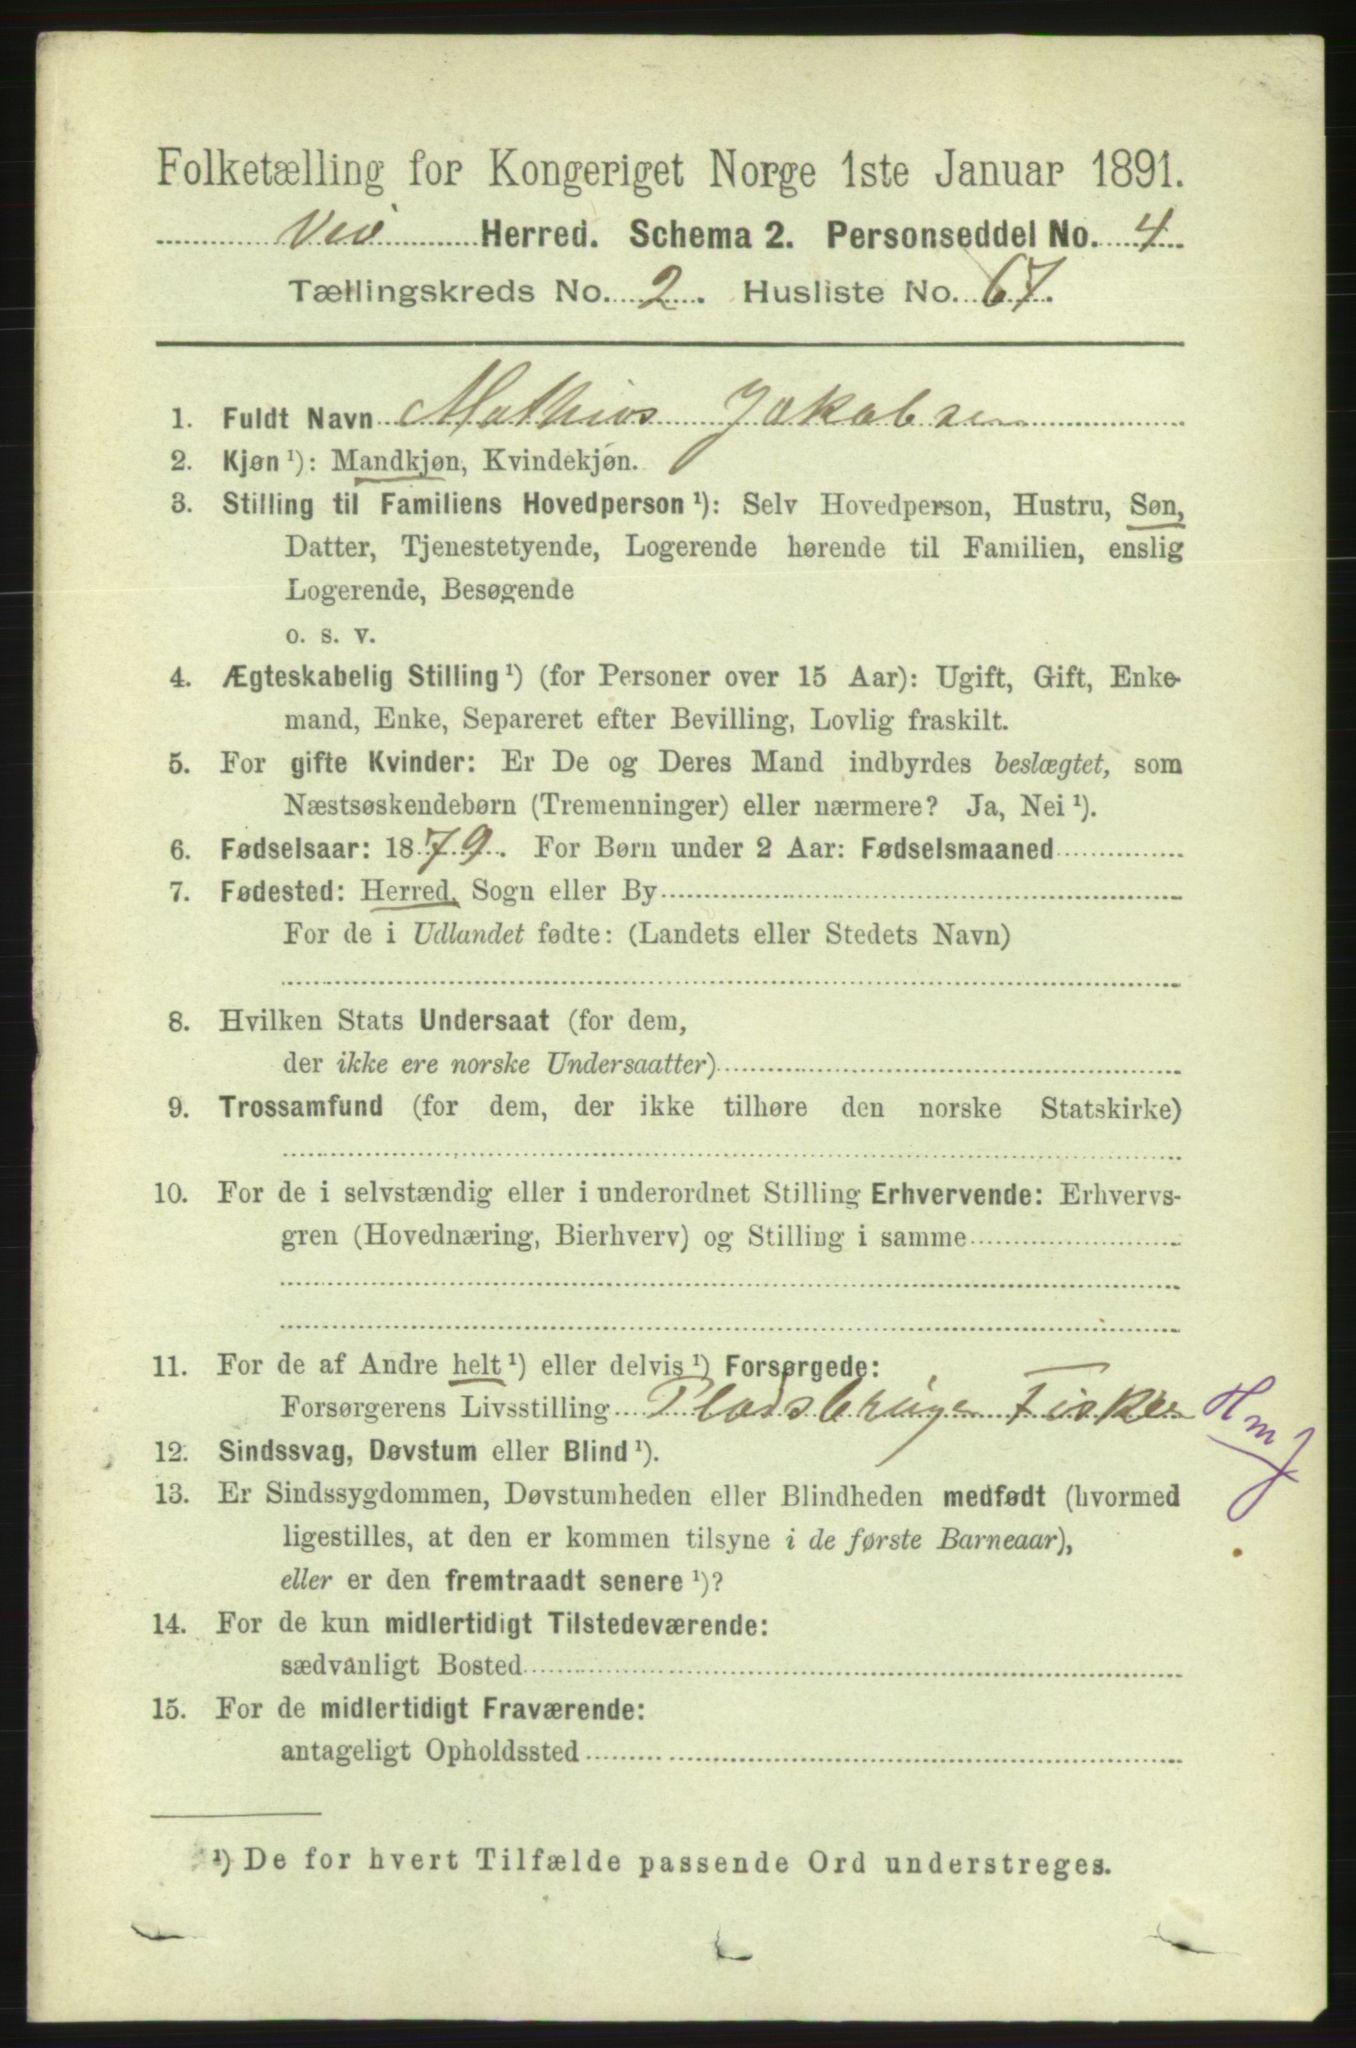 Folketælling for Kongeriget Norge 1ste Januar 1891.
Veø Herred. Schema 2. Personseddel No. 4
Tællingskreds No. 2. Husliste No. 67.
1. Fuldt Navn Mathias Jakobsen
2. Kjøn ¹): Mandkjøn, Kvindekjøn.
3. Stilling til Familiens Hovedperson ¹): Selv Hovedperson, Hustru, Søn,
Datter, Tjenestetyende, Logerende hørende til Familien, enslig
Logerende, Besøgende
o. s. v.
4. Ægteskabelig Stilling ¹) (for Personer over 15 Aar): Ugift, Gift, Enke-
mand, Enke, Separeret efter Bevilling, Lovlig fraskilt.
5. For gifte Kvinder: Er De og Deres Mand indbyrdes beslægtet, som
Næstsøskendebørn (Tremenninger) eller nærmere? Ja, Nei ¹).
6. Fødselsaar: 1879. For Børn under 2 Aar: Fødselsmaaned
7. Fødested: Herred, Sogn eller By
For de i Udlandet fødte: (Landets eller Stedets Navn)
8. Hvilken Stats Undersaat (for dem,
der ikke ere norske Undersaatter)
9. Trossamfund (for dem, der ikke tilhøre den norske Statskirke)
10. For de i selvstændig eller i underordnet Stilling Erhvervende: Erhvervs-
gren (Hovednæring, Bierhverv) og Stilling i samme
11. For de af Andre helt ¹) eller delvis ¹) Forsørgede:
Forsørgerens Livsstilling Pladsbruger Fisker
12. Sindssvag, Døvstum eller Blind ¹).
13. Er Sindssygdommen, Døvstumheden eller Blindheden medfødt (hvormed
ligestilles, at den er kommen tilsyne i de første Barneaar),
eller er den fremtraadt senere ¹)?
14. For de kun midlertidigt Tilstedeværende:
sædvanligt Bosted
15. For de midlertidigt Fraværende:
antageligt Opholdssted
¹) De for hvert Tilfælde passende Ord understreges.